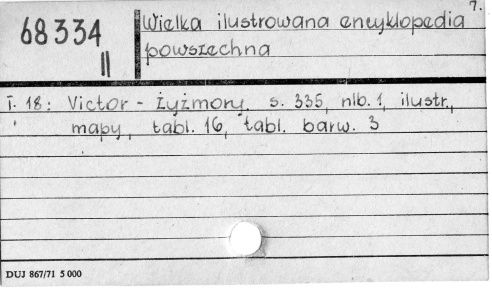 7.
68334
II
Wielka ilustrowana encyklopedia
powszechna
T. 18: Victor - Żyżmory, s. 335, nlb. 1, ilustr.,
mapy, tabl. 16, tabl. barw. 3
DUJ 867/71 5 000